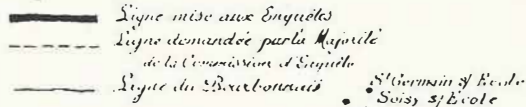 Ligne mise aux Enquêtes
Ligne demandée par la Majorité
de la Commission d'Enquête
Ligne du Bourbonnais
St Germain s/ Ecole
Soisy s/ Ecole